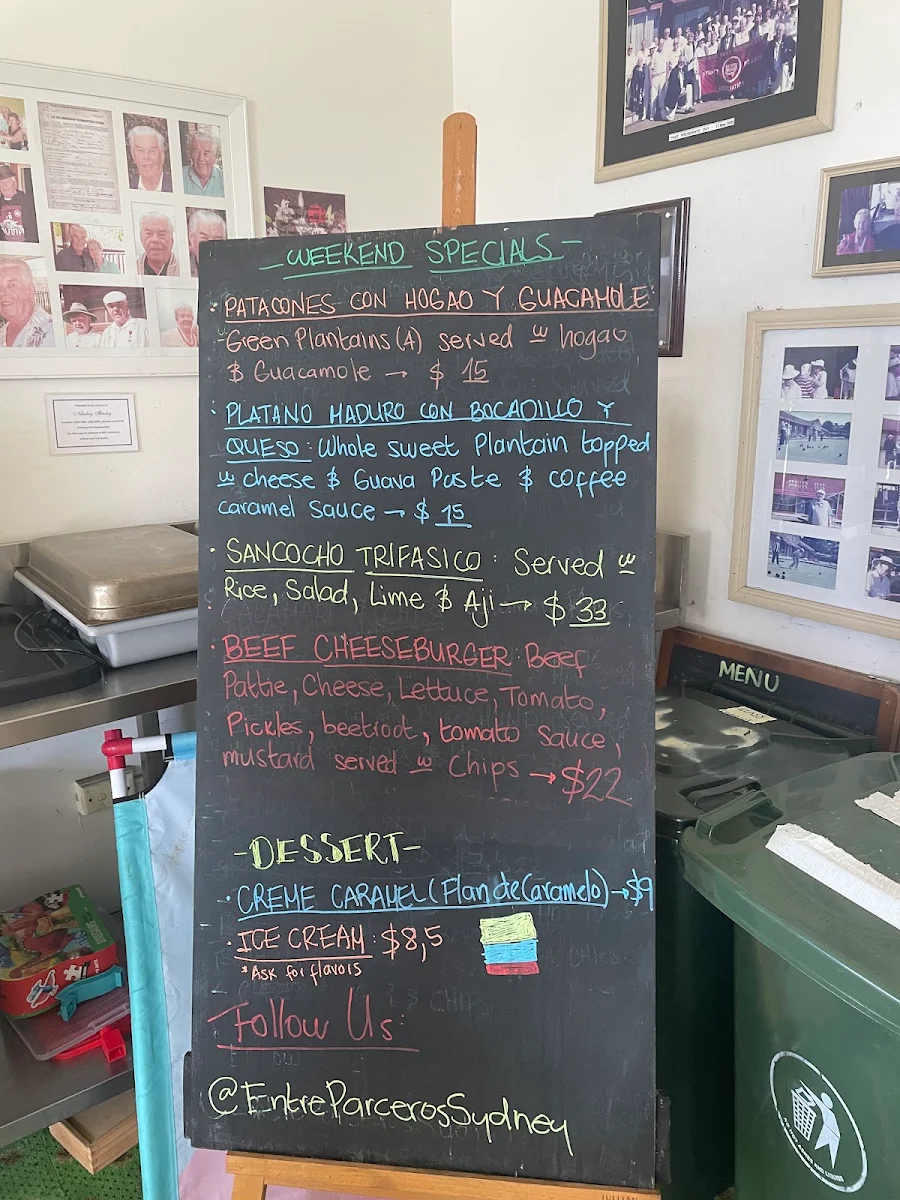 - WEEKEND SPECIALS -
· PATACONES CON HOGAO Y GUACAMOLE
-Green Plantains(4) served w hogao
& Guacamole → $ 15
· PLATANO MADURO CON BOCADILLO Y
QUESO: Whole sweet Plantain topped
w cheese & Guava Paste & coffee
caramel Sauce → $ 15
· SANCOCHO TRIFASICO: Served w
Rice, Salad, Lime & Aji → $ 33
· BEEF CHEESEBURGER: Beef
Pattie, Cheese, Lettuce, Tomato,
Pickles, beetroot, tomato sauce,
mustard served w Chips → $22
-DESSERT-
· CREME CARAMEL (Flan de Caramelo) → $9
· ICE CREAM: $8,5
*Ask for flavors
Follow Us:
@EntreParcerosSydney
MENU